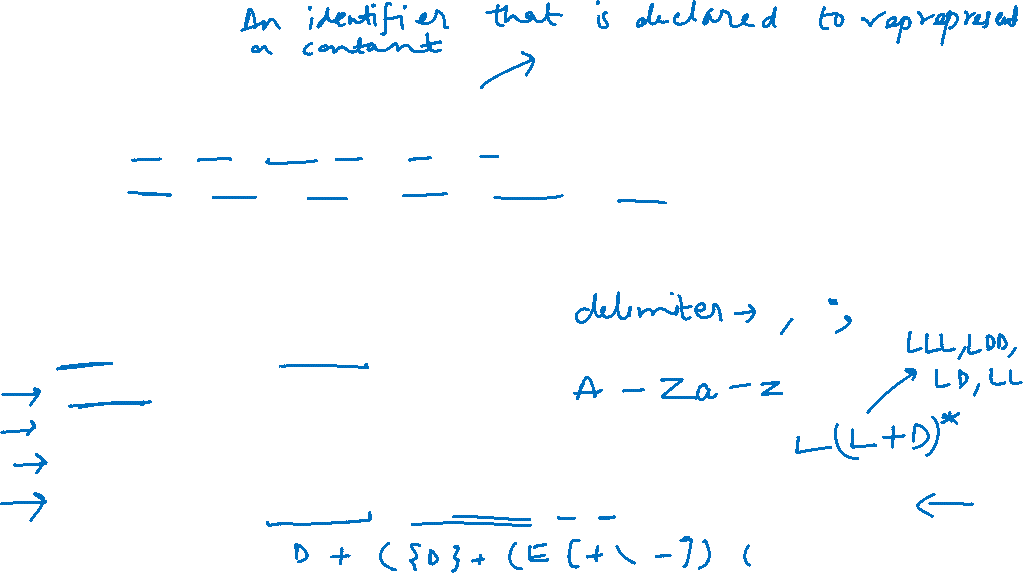 An identifier that is declared to reprepresent
a contant
delimiter → , ;
LLL, LDD,
A - Za - z
LD, LL
L(L+D)*
D + ( {D} + (E [+ \ - ]) (